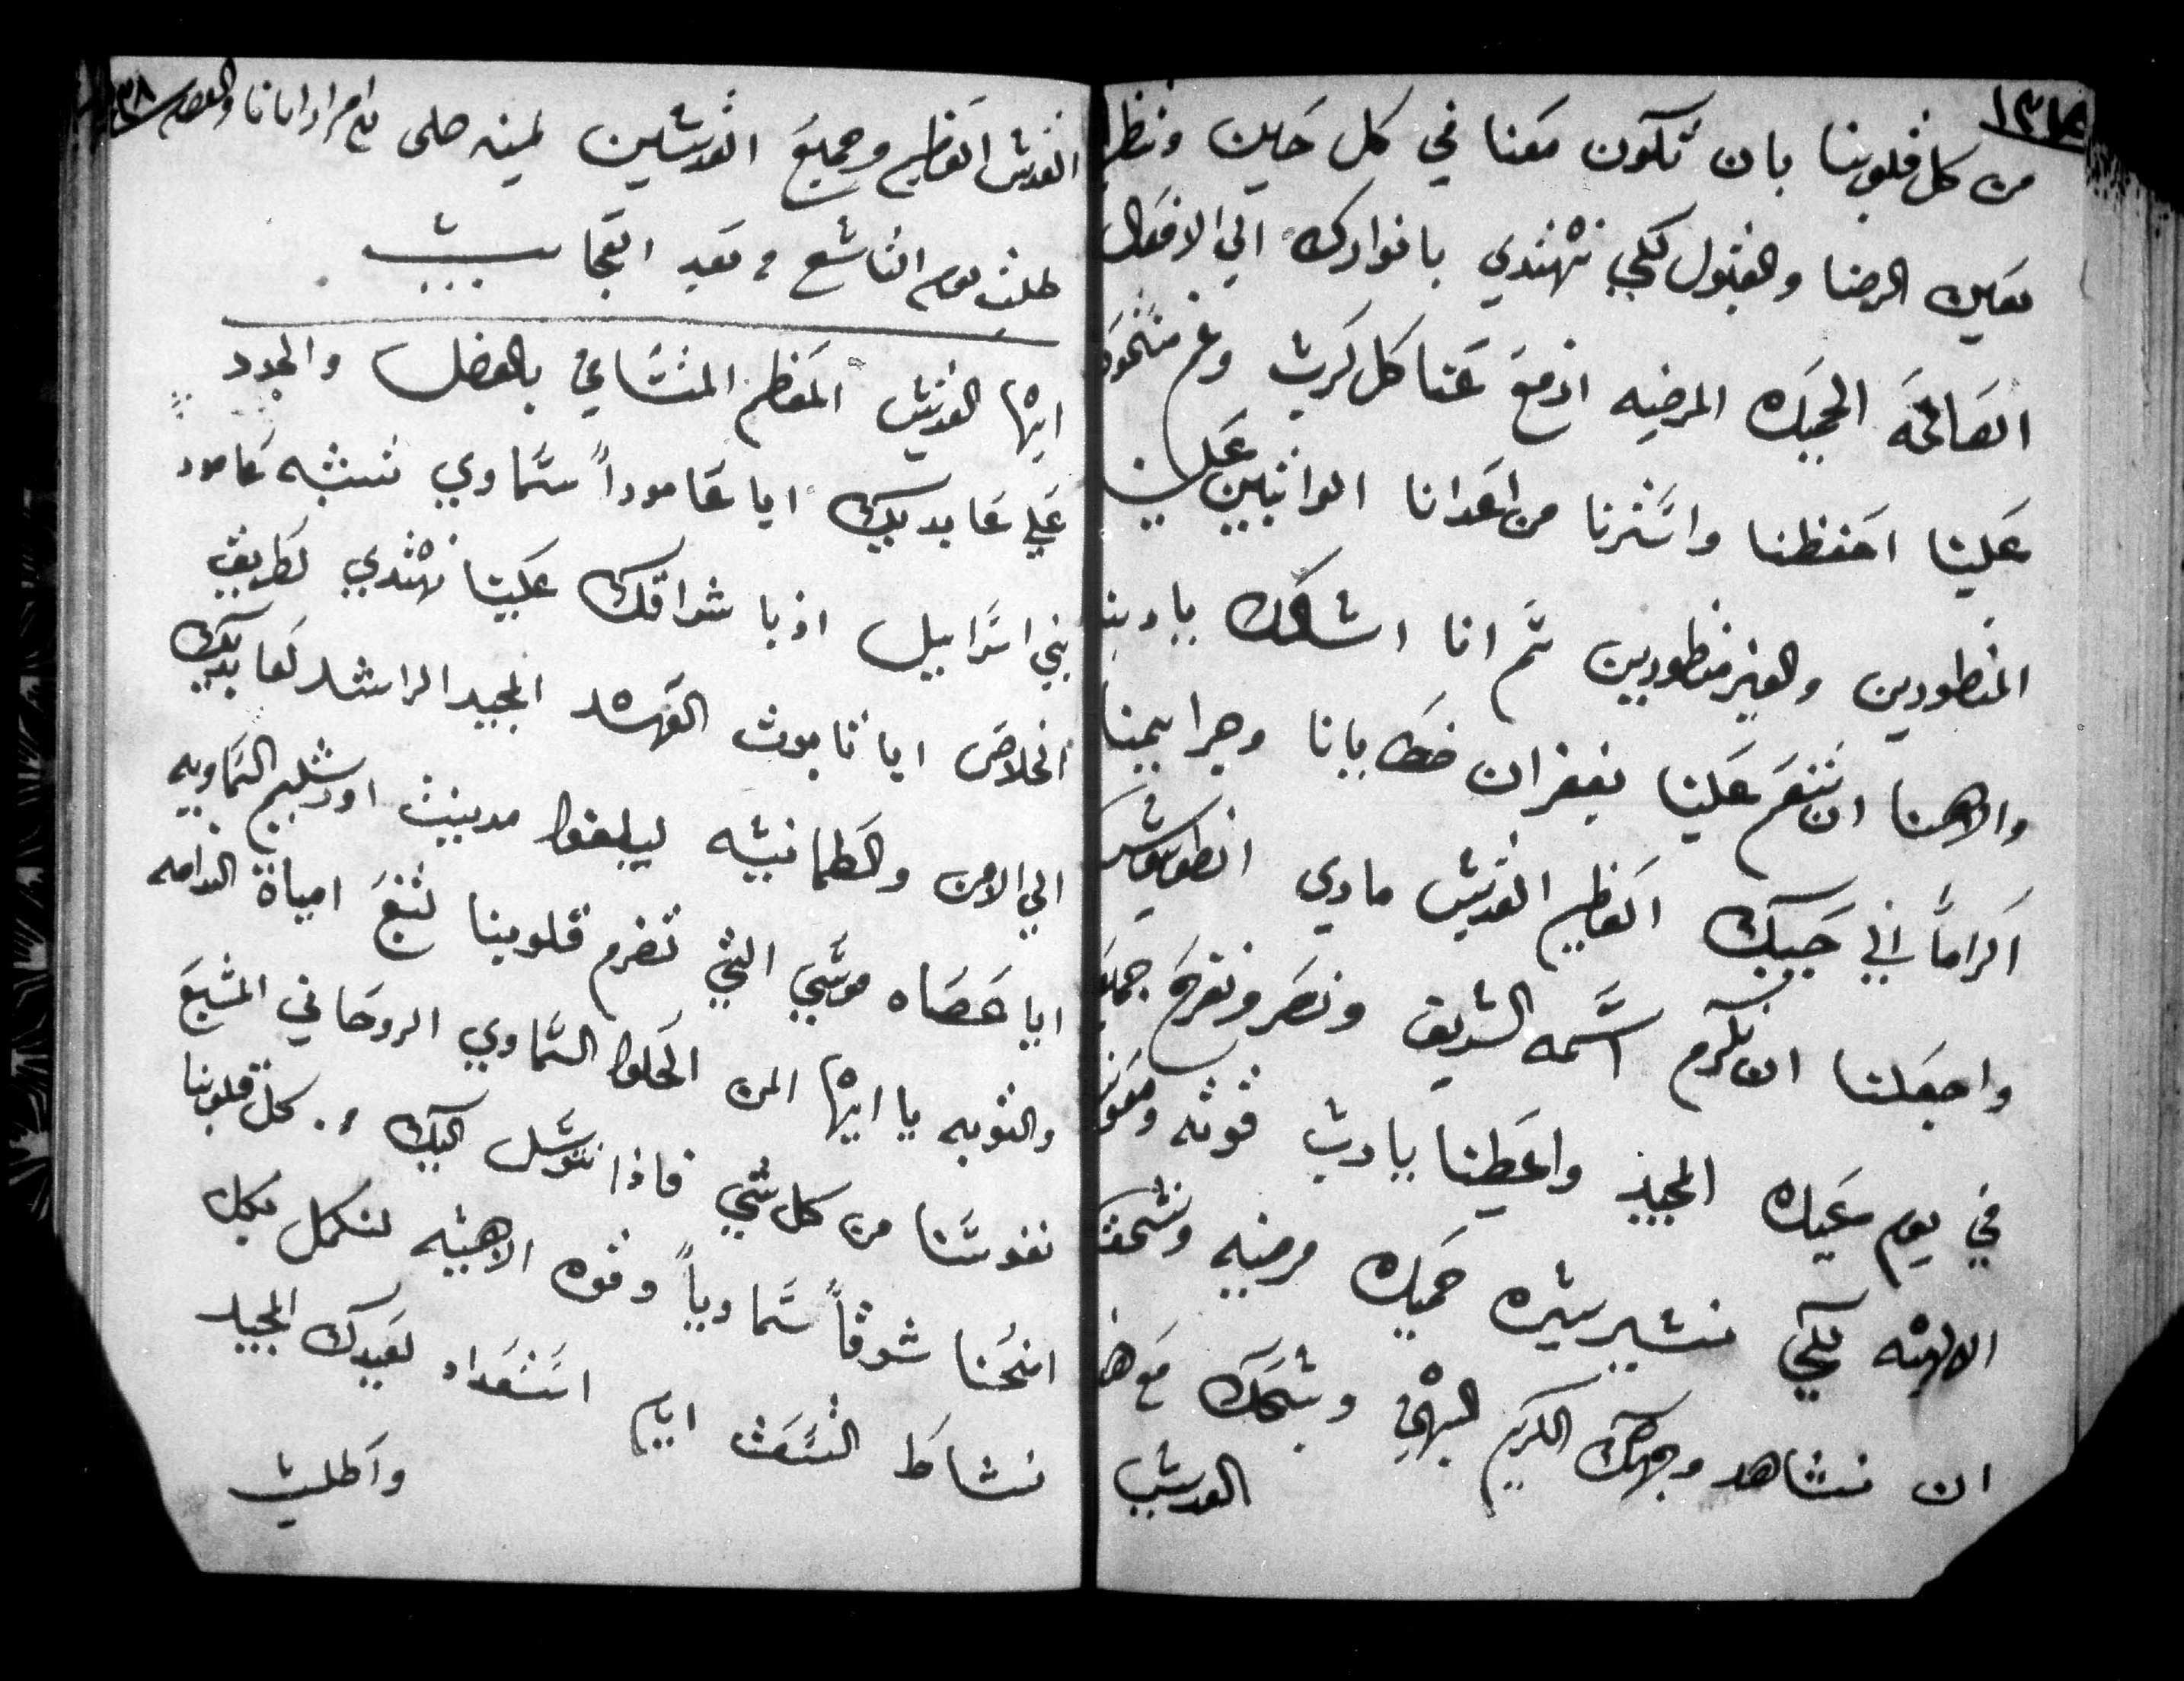 من كل قلوبنا بان تكون معنا في كل حين وننظر
بعين الرضا والقبول لكي نهتدي بانوارك الي الافعال
الصالحه الحميده المرضيه ادفع عنا كل كرب وغم
علينا احفظنا واسترنا من اعدانا الواثبين علين
المنظورين والغير منظورين ثم انا اسالك ياربنا
والاهنا ان تنعم علينا بغفران خطايانا وجرايمنا
اكراماً الي حبيبك العظيم القديس ماري انطونيوس
واجعلنا ان نكرم اسمه الشريف ونصر ونفرح جميعا
في يوم عيده المجيد واعطنا يارب قوته ومعونه
الالهيه لكي نسير سيره حميده مرضيه ونستحق
ان نشاهد وجهك الكريم البهي ونسبحك مع هذا
القديس
القديس العظيم وجميع القديسين امين
طلبت يوم التاسع تعبد العجايب
ايها القديس المعظم المتسامي بالفضل والجود
علي عابديك ايا عاموداً سماوي تشبه عامود
بني اسراييل اذ باشراقك علينا نهتدي لطريق
الخلاص ايا تابوت العهد المجيد الراشد لعابديك
الي الامن والطمانينه ليبلغوا مدينت اورشليم السماويه
ايا عصاه موسي التي تضرم قلوبنا لتنبع امياه الندامه
والتوبه يا ايها المن الحلو السماوي الروحاني المشبع
نفوسنا من كل شي فاذا نتوسل اليك من كل قلوبنا
امنحنا شوقاً سماوياً وقوه الاهيه لنكمل بكل
نشاط التسعت ايام استعداد لعيدك المجيد
واطلب